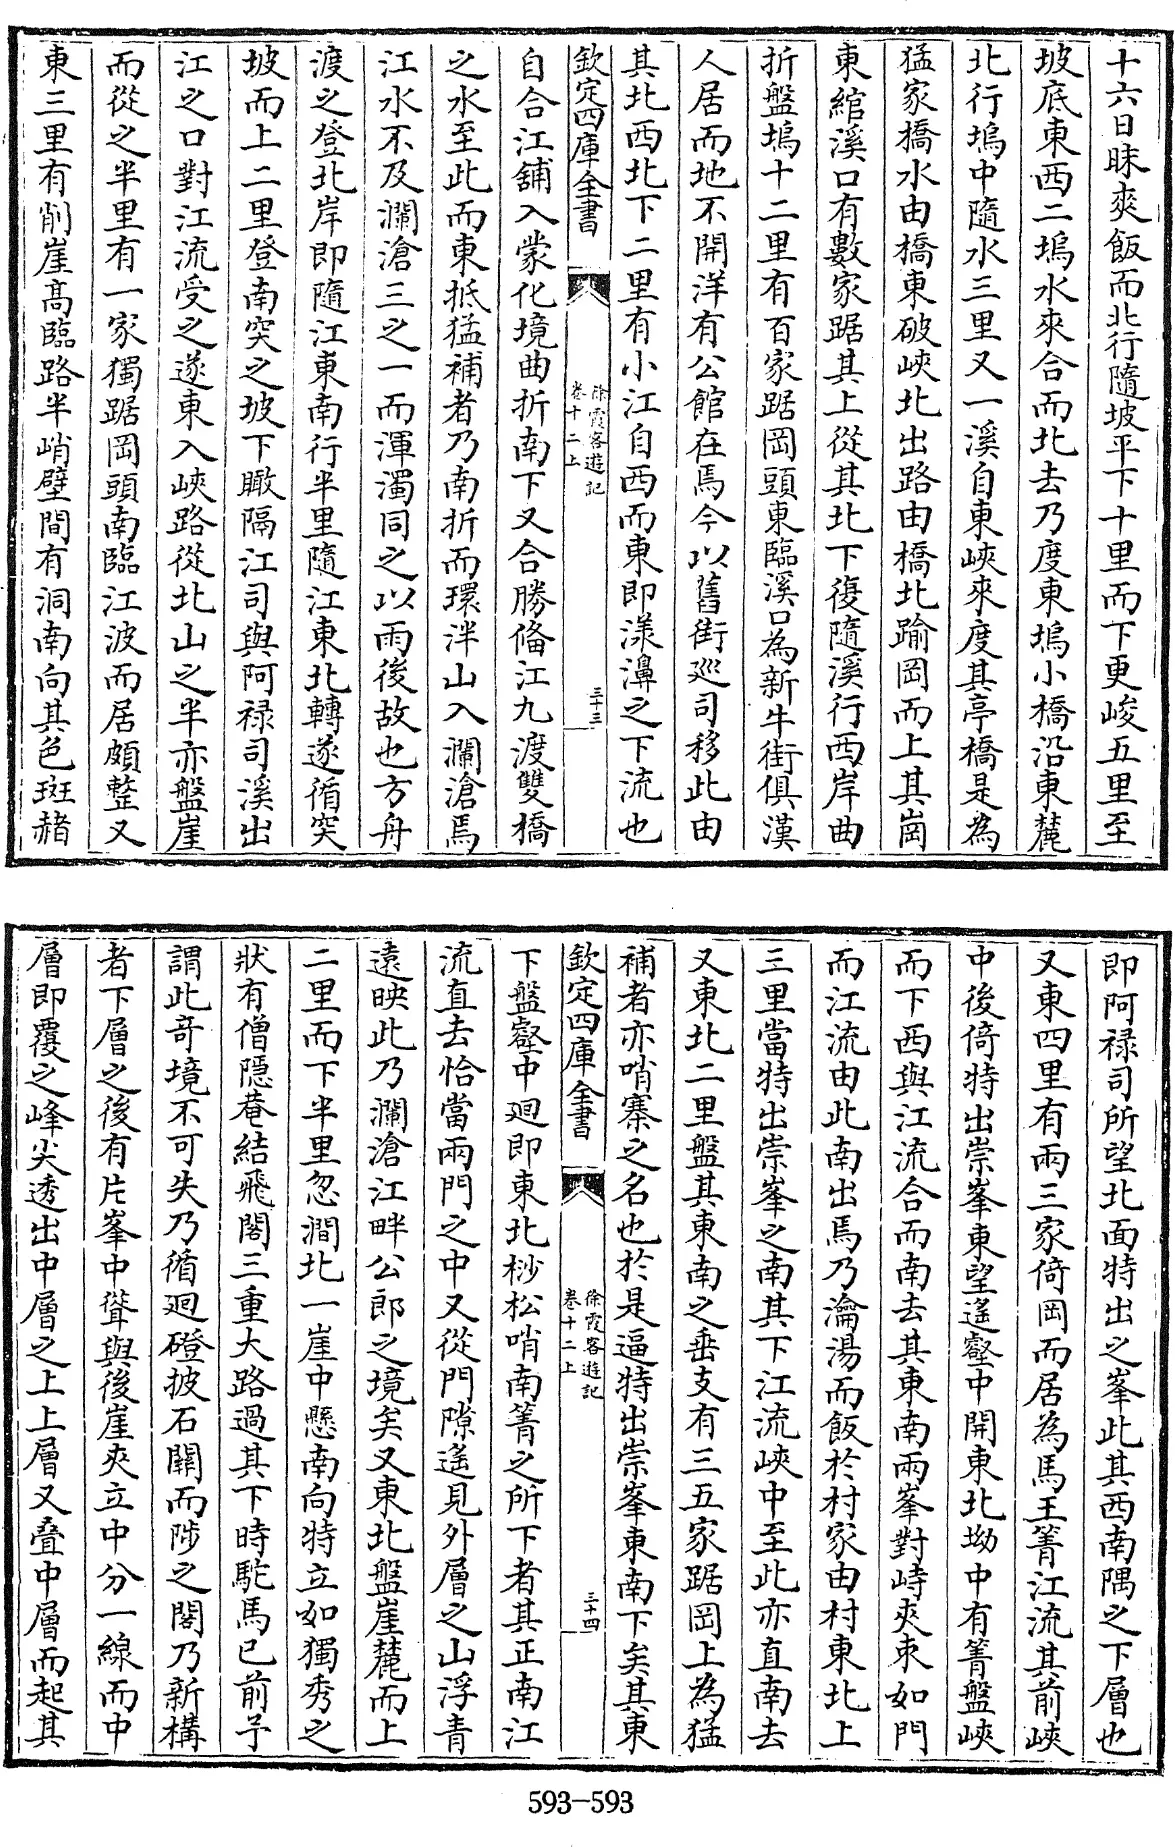 十六日昧爽飯而北行隨坡平下十里而下更峻五里至
坡底東西二塢水來合而北去乃度東塢小橋沿東麓
北行塢中隨水三里又一溪自東峽來度其亭橋是為
猛家橋水由橋東破峽北出路由橋北踰岡而上其崗
東綰溪口有數家踞其上從其北下復隨溪行西岸曲
折盤塢十二里有百家踞岡頭東臨溪口為新牛街俱漢
人居而地不開洋有公館在焉今以舊街廵司移此由
其北西北下二里有小江自西而東即漾濞之下流也
欽定四庫全書
徐霞客遊記
卷十二上
三十三
自合江舖入蒙化境曲折南下又合勝俻江九渡雙橋
之水至此而東抵猛補者乃南折而環泮山入瀾滄焉
江水不及瀾滄三之一而渾濁同之以雨後故也方舟
渡之登北岸即隨江東南行半里隨江東北轉遂循突
坡而上二里登南突之坡下瞰隔江司與阿禄司溪出
江之口對江流受之遂東入峽路從北山之半亦盤崖
而從之半里有一家獨踞岡頭南臨江波而居頗整又
東三里有削崖髙臨路半峭壁間有洞南向其色斑赭
即阿禄司所望北面特出之峯此其西南隅之下層也
又東四里有兩三家倚岡而居為馬王箐江流其前峽
中後倚特出崇峯東望遙壑中開東北坳中有箐盤峽
而下西與江流合而南去其東南兩峯對峙夾束如門
而江流由此南出焉乃瀹湯而飯於村家由村東北上
三里當特出崇峯之南其下江流峽中至此亦直南去
又東北二里盤其東南之垂支有三五家踞岡上為猛
補者亦哨寨之名也於是逼特出崇峯東南下矣其東
欽定四庫全書
徐霞客遊記
卷十二上
三十四
下盤壑中廻即東北杪松哨南箐之所下者其正南江
流直去恰當兩門之中又從門隙遙見外層之山浮青
遠映此乃瀾滄江畔公郎之境矣又東北盤崖麓而上
二里而下半里忽澗北一崖中懸南向特立如獨秀之
狀有僧隠菴結飛閣三重大路過其下時駝馬已前予
謂此竒境不可失乃循廻磴披石闢而陟之閣乃新構
者下層之後有片峯中聳與後崖夾立中分一線而中
層即覆之峰尖透出中層之上上層又叠中層而起其
593-593